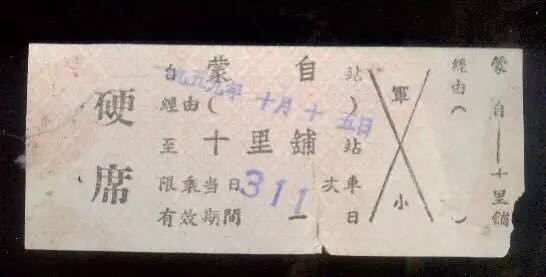 硬席
自 蒙自 站
一九五九年十月十五日
經由( )
至 十里鋪 站
限乘當日 311 次車
有效期間 一 日
軍
小
經由( )
蒙自——十里鋪